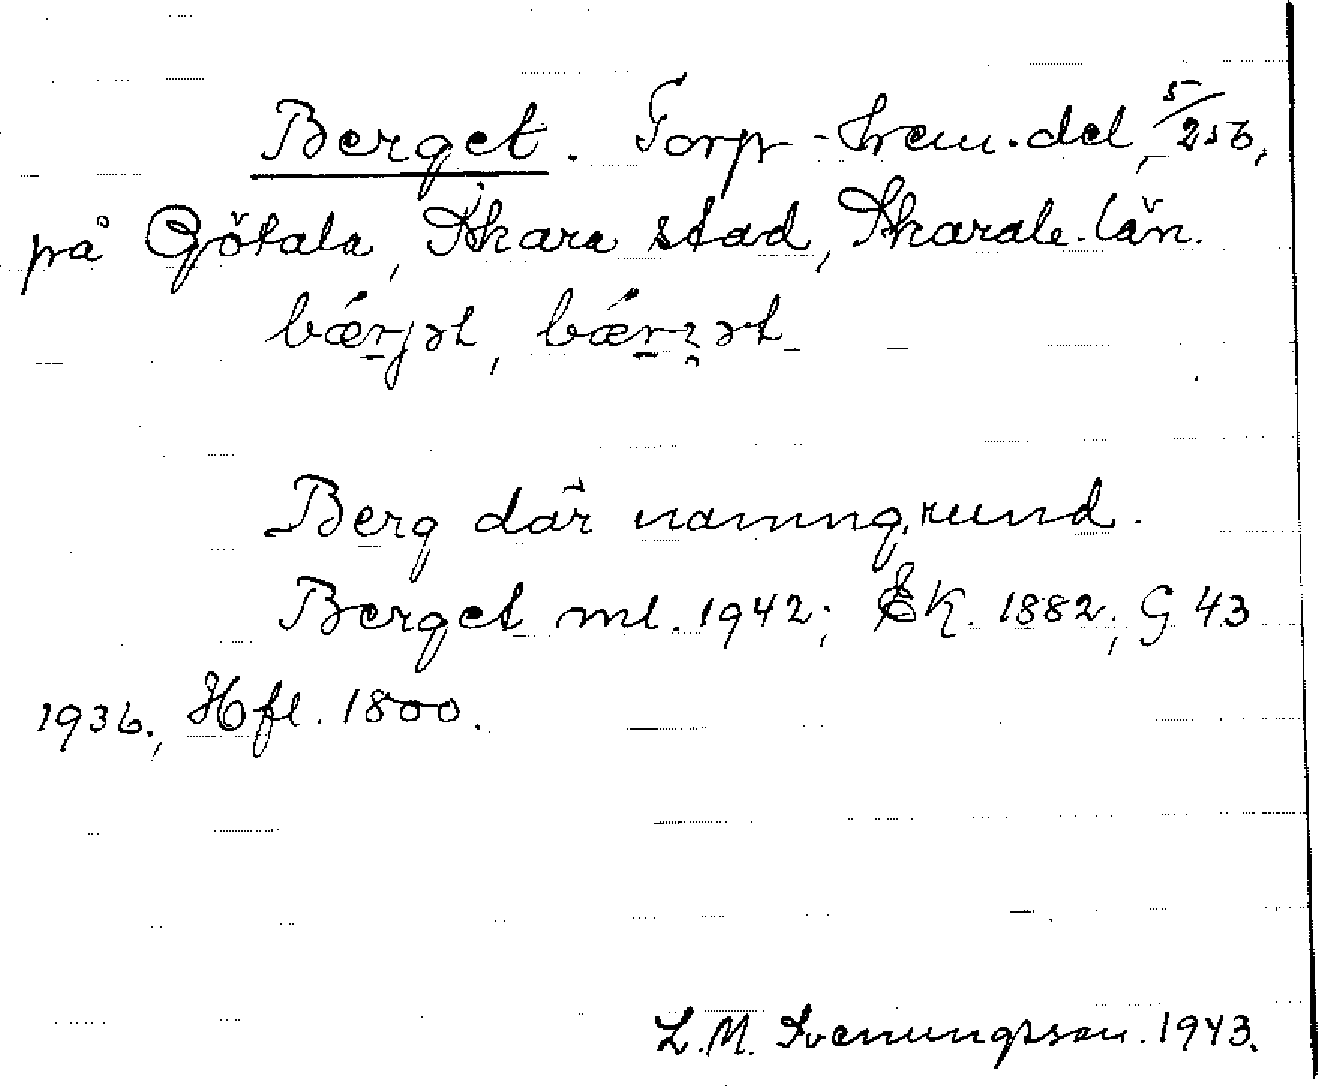 Berget. Torp-hem.del, 5/256,
på Götala, Skara stad, Skarab. län.
bǽrjət, bǽrʒət
Berg där namngrund.
Berget ml. 1942; EK. 1882; G 43
1936., Hfl. 1800.
L.M. Svenungsson. 1943.